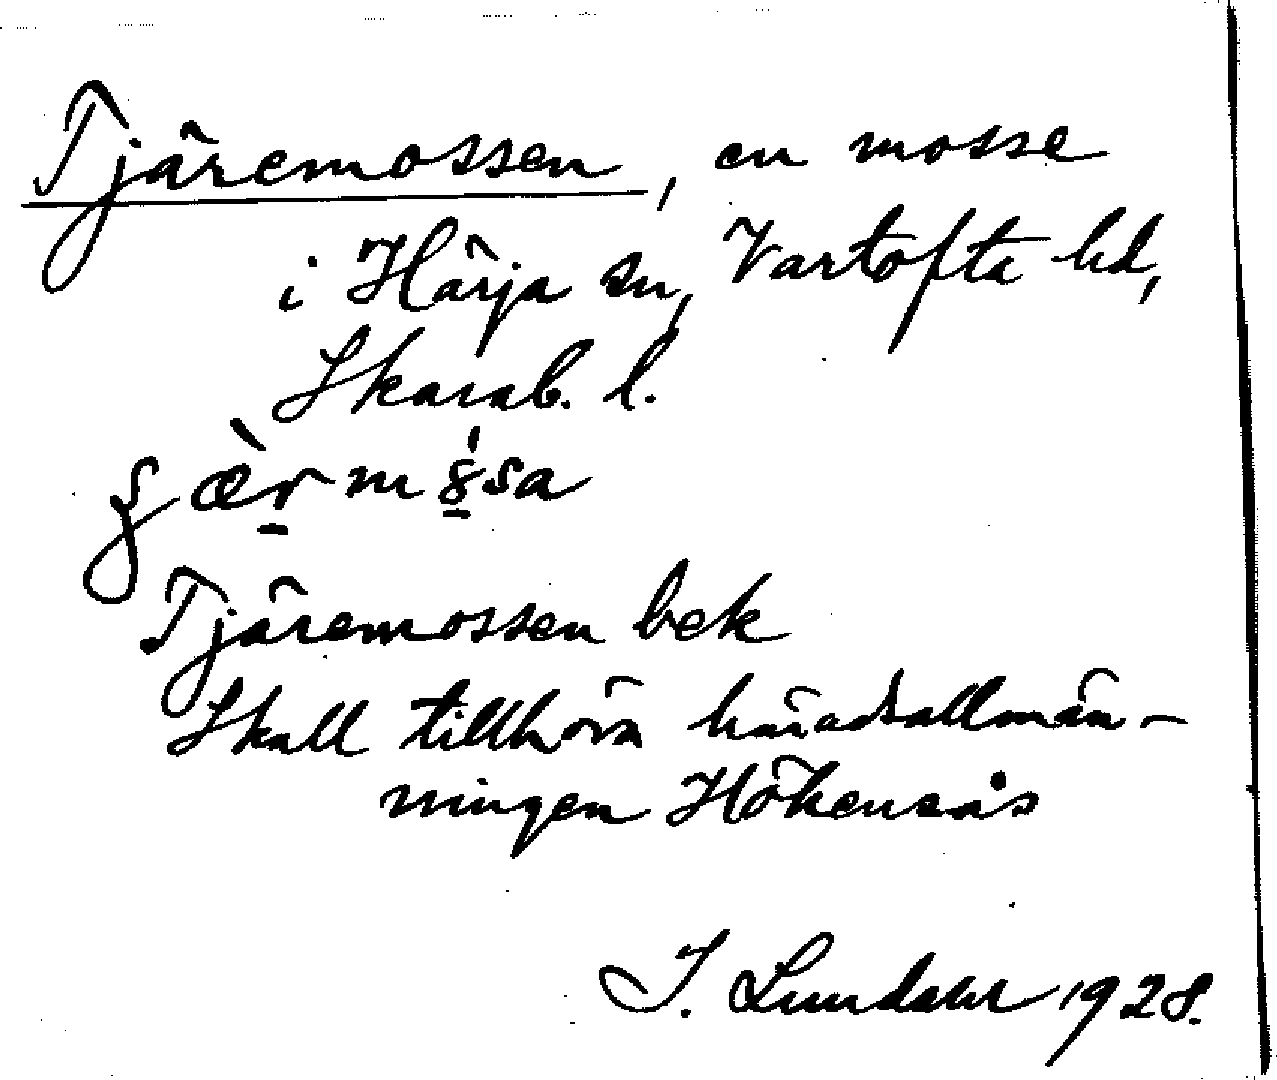 Tjäremossen, en mosse
i Härja sn, Vartofta hd,
Skarab. l.
Tjäremossen bek
Skall tillhöra häradsallmän-
ningen Hökensås
I. Lundahl 1928.